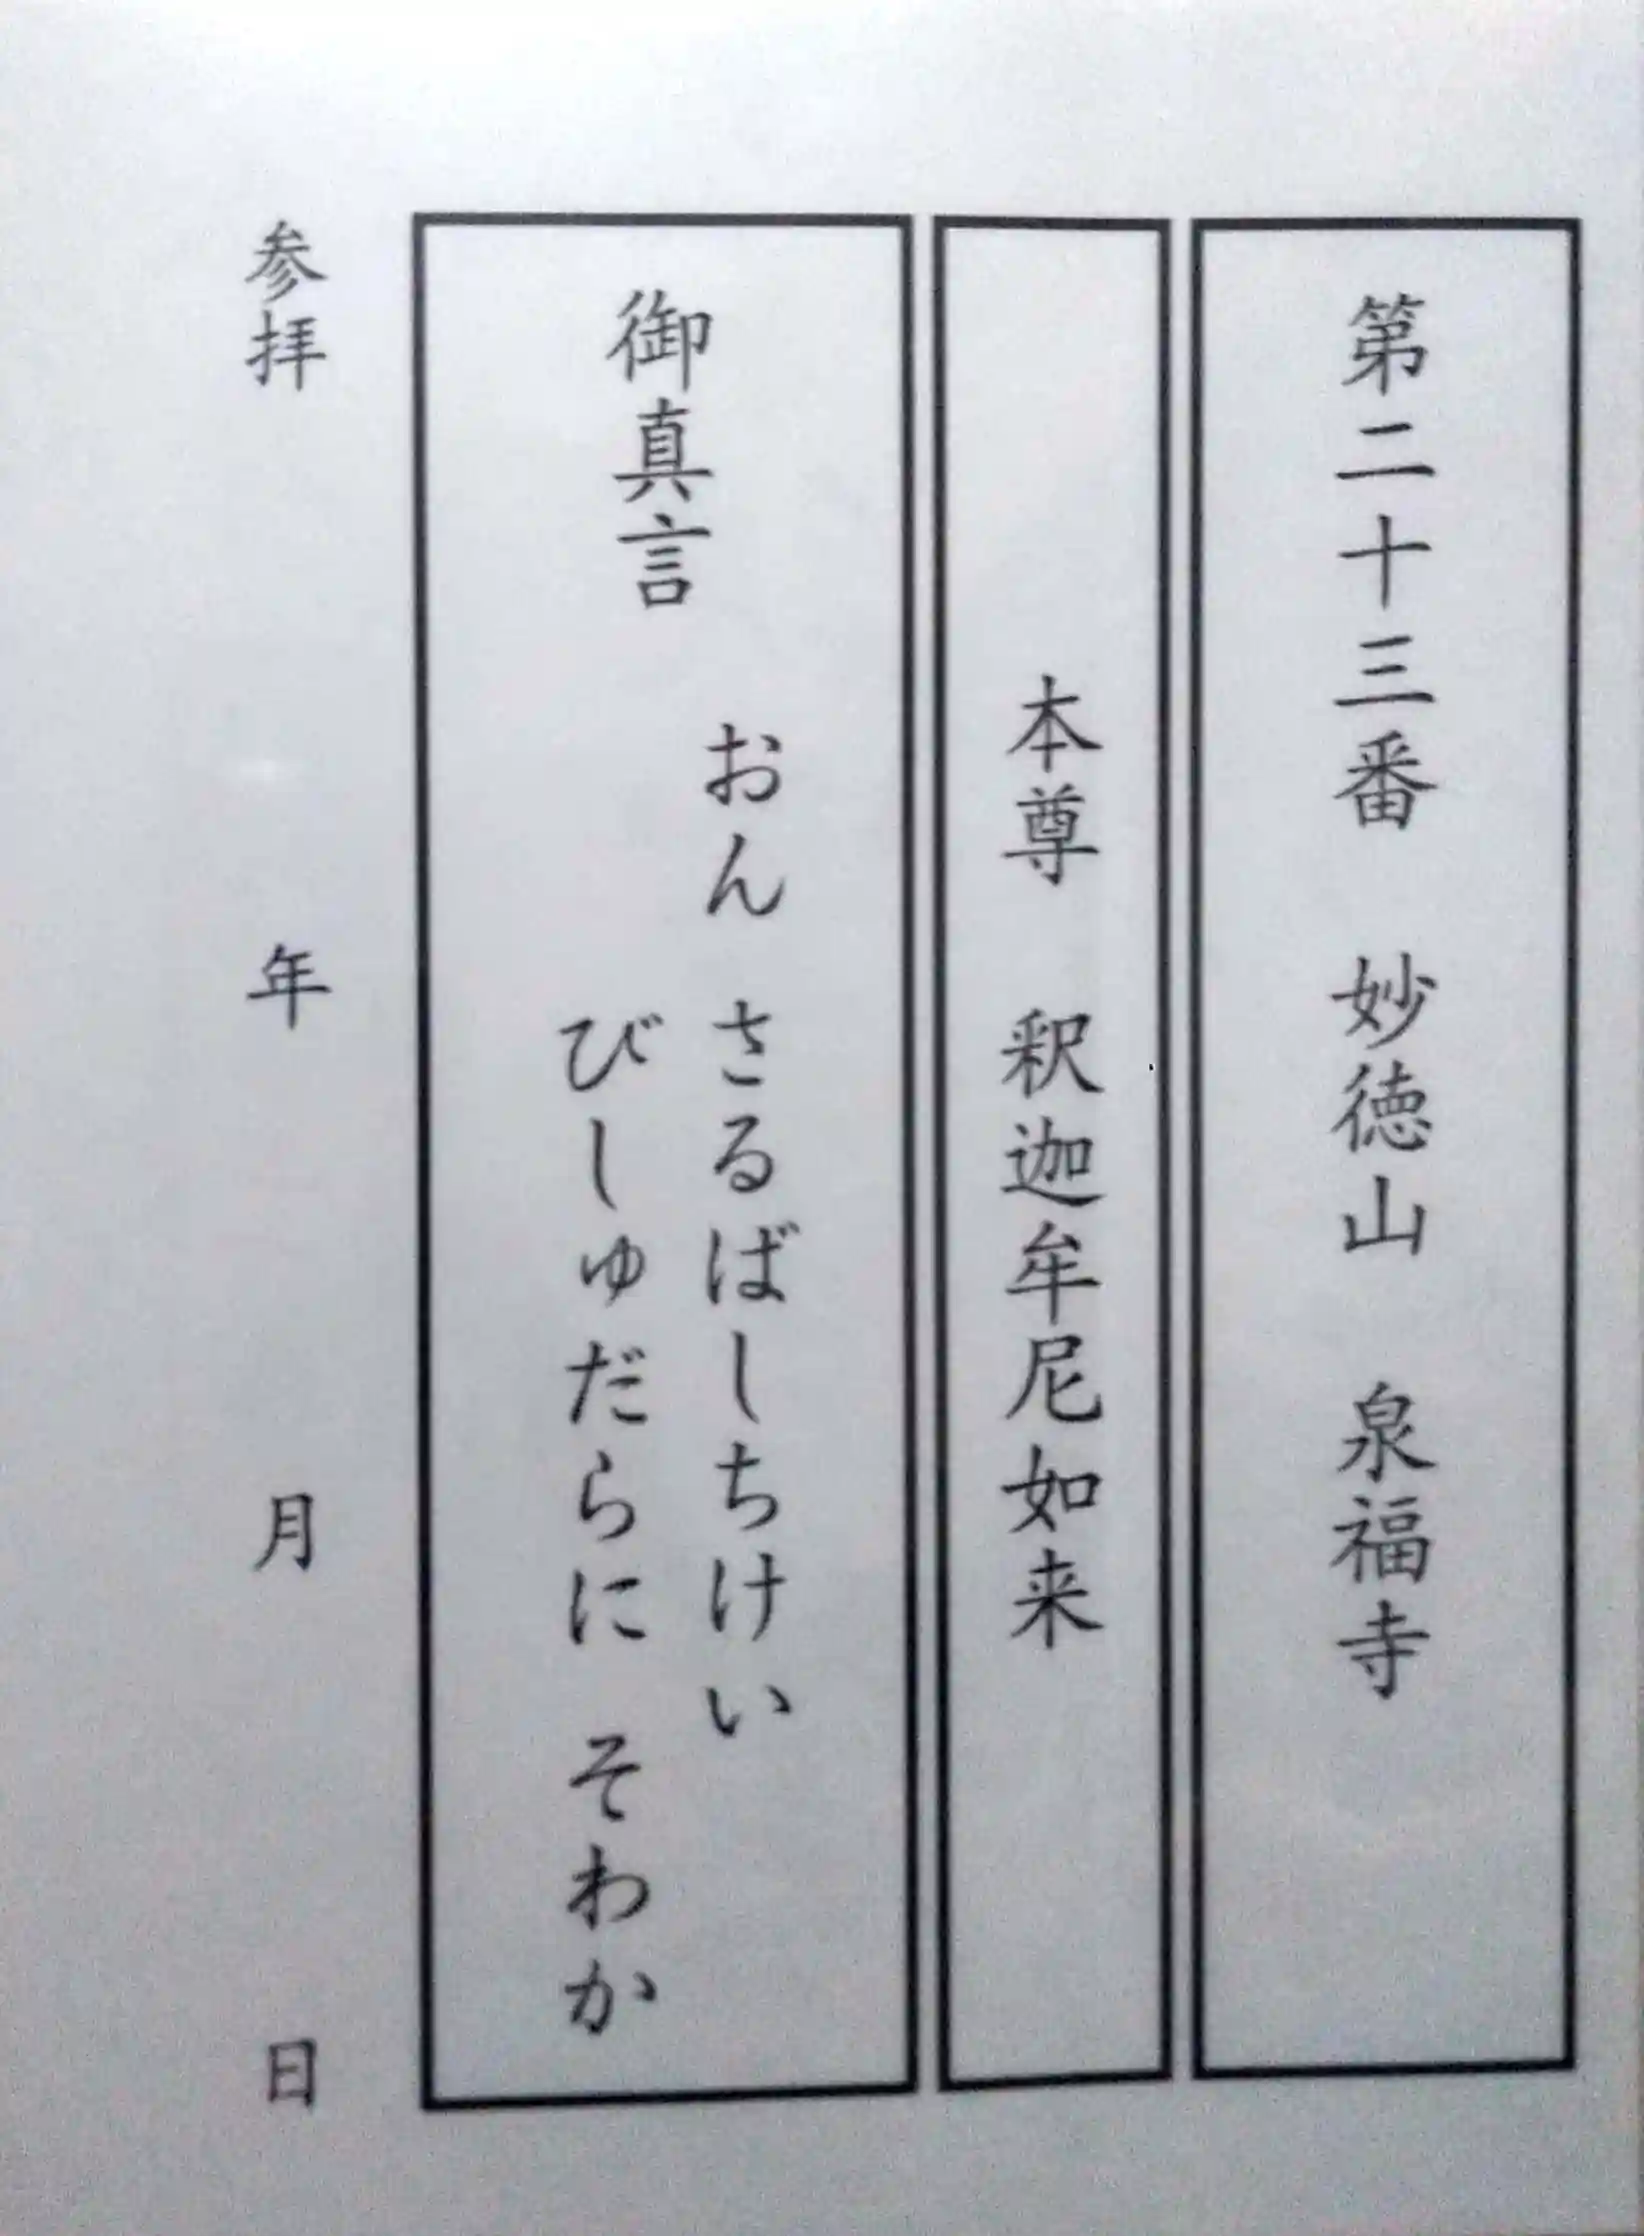 第二十三番　妙徳山　泉福寺
本尊　釈迦牟尼如来
御真言
おん　さるばしちけい
びしゅだらに　そわか
参拝　年　月　日